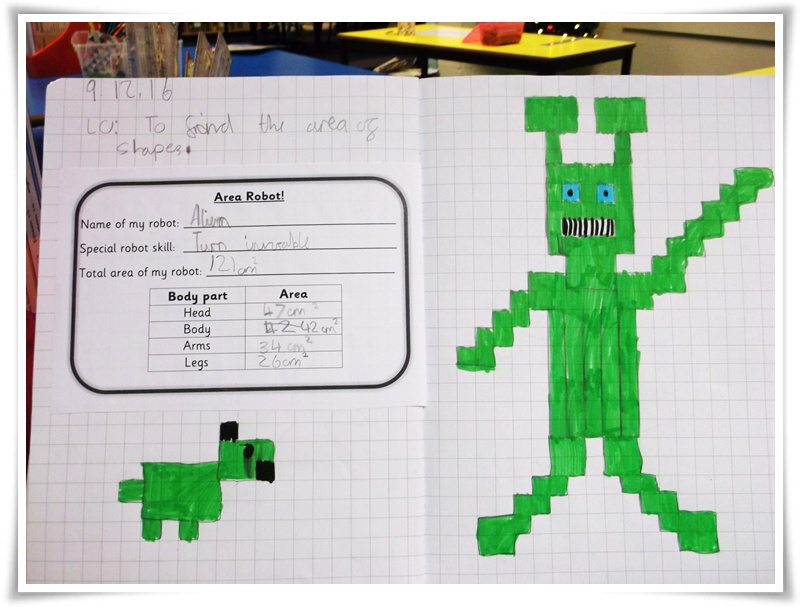 9.12.16
LO: To find the area of
shapes.
Area Robot!
Name of my robot:
Special robot skill: Turn
Total area of my robot: 121cm²
Body part Area
Head 47cm²
Body 42cm²
Arms 34cm²
Legs 26cm²